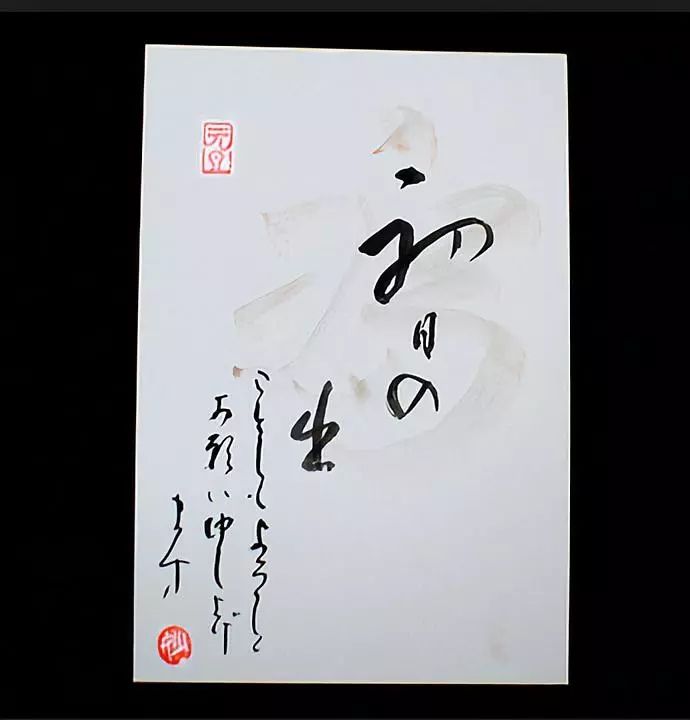 初日の
出
ことしもよろしく
お願い申し上げ
ます
元旦
妙